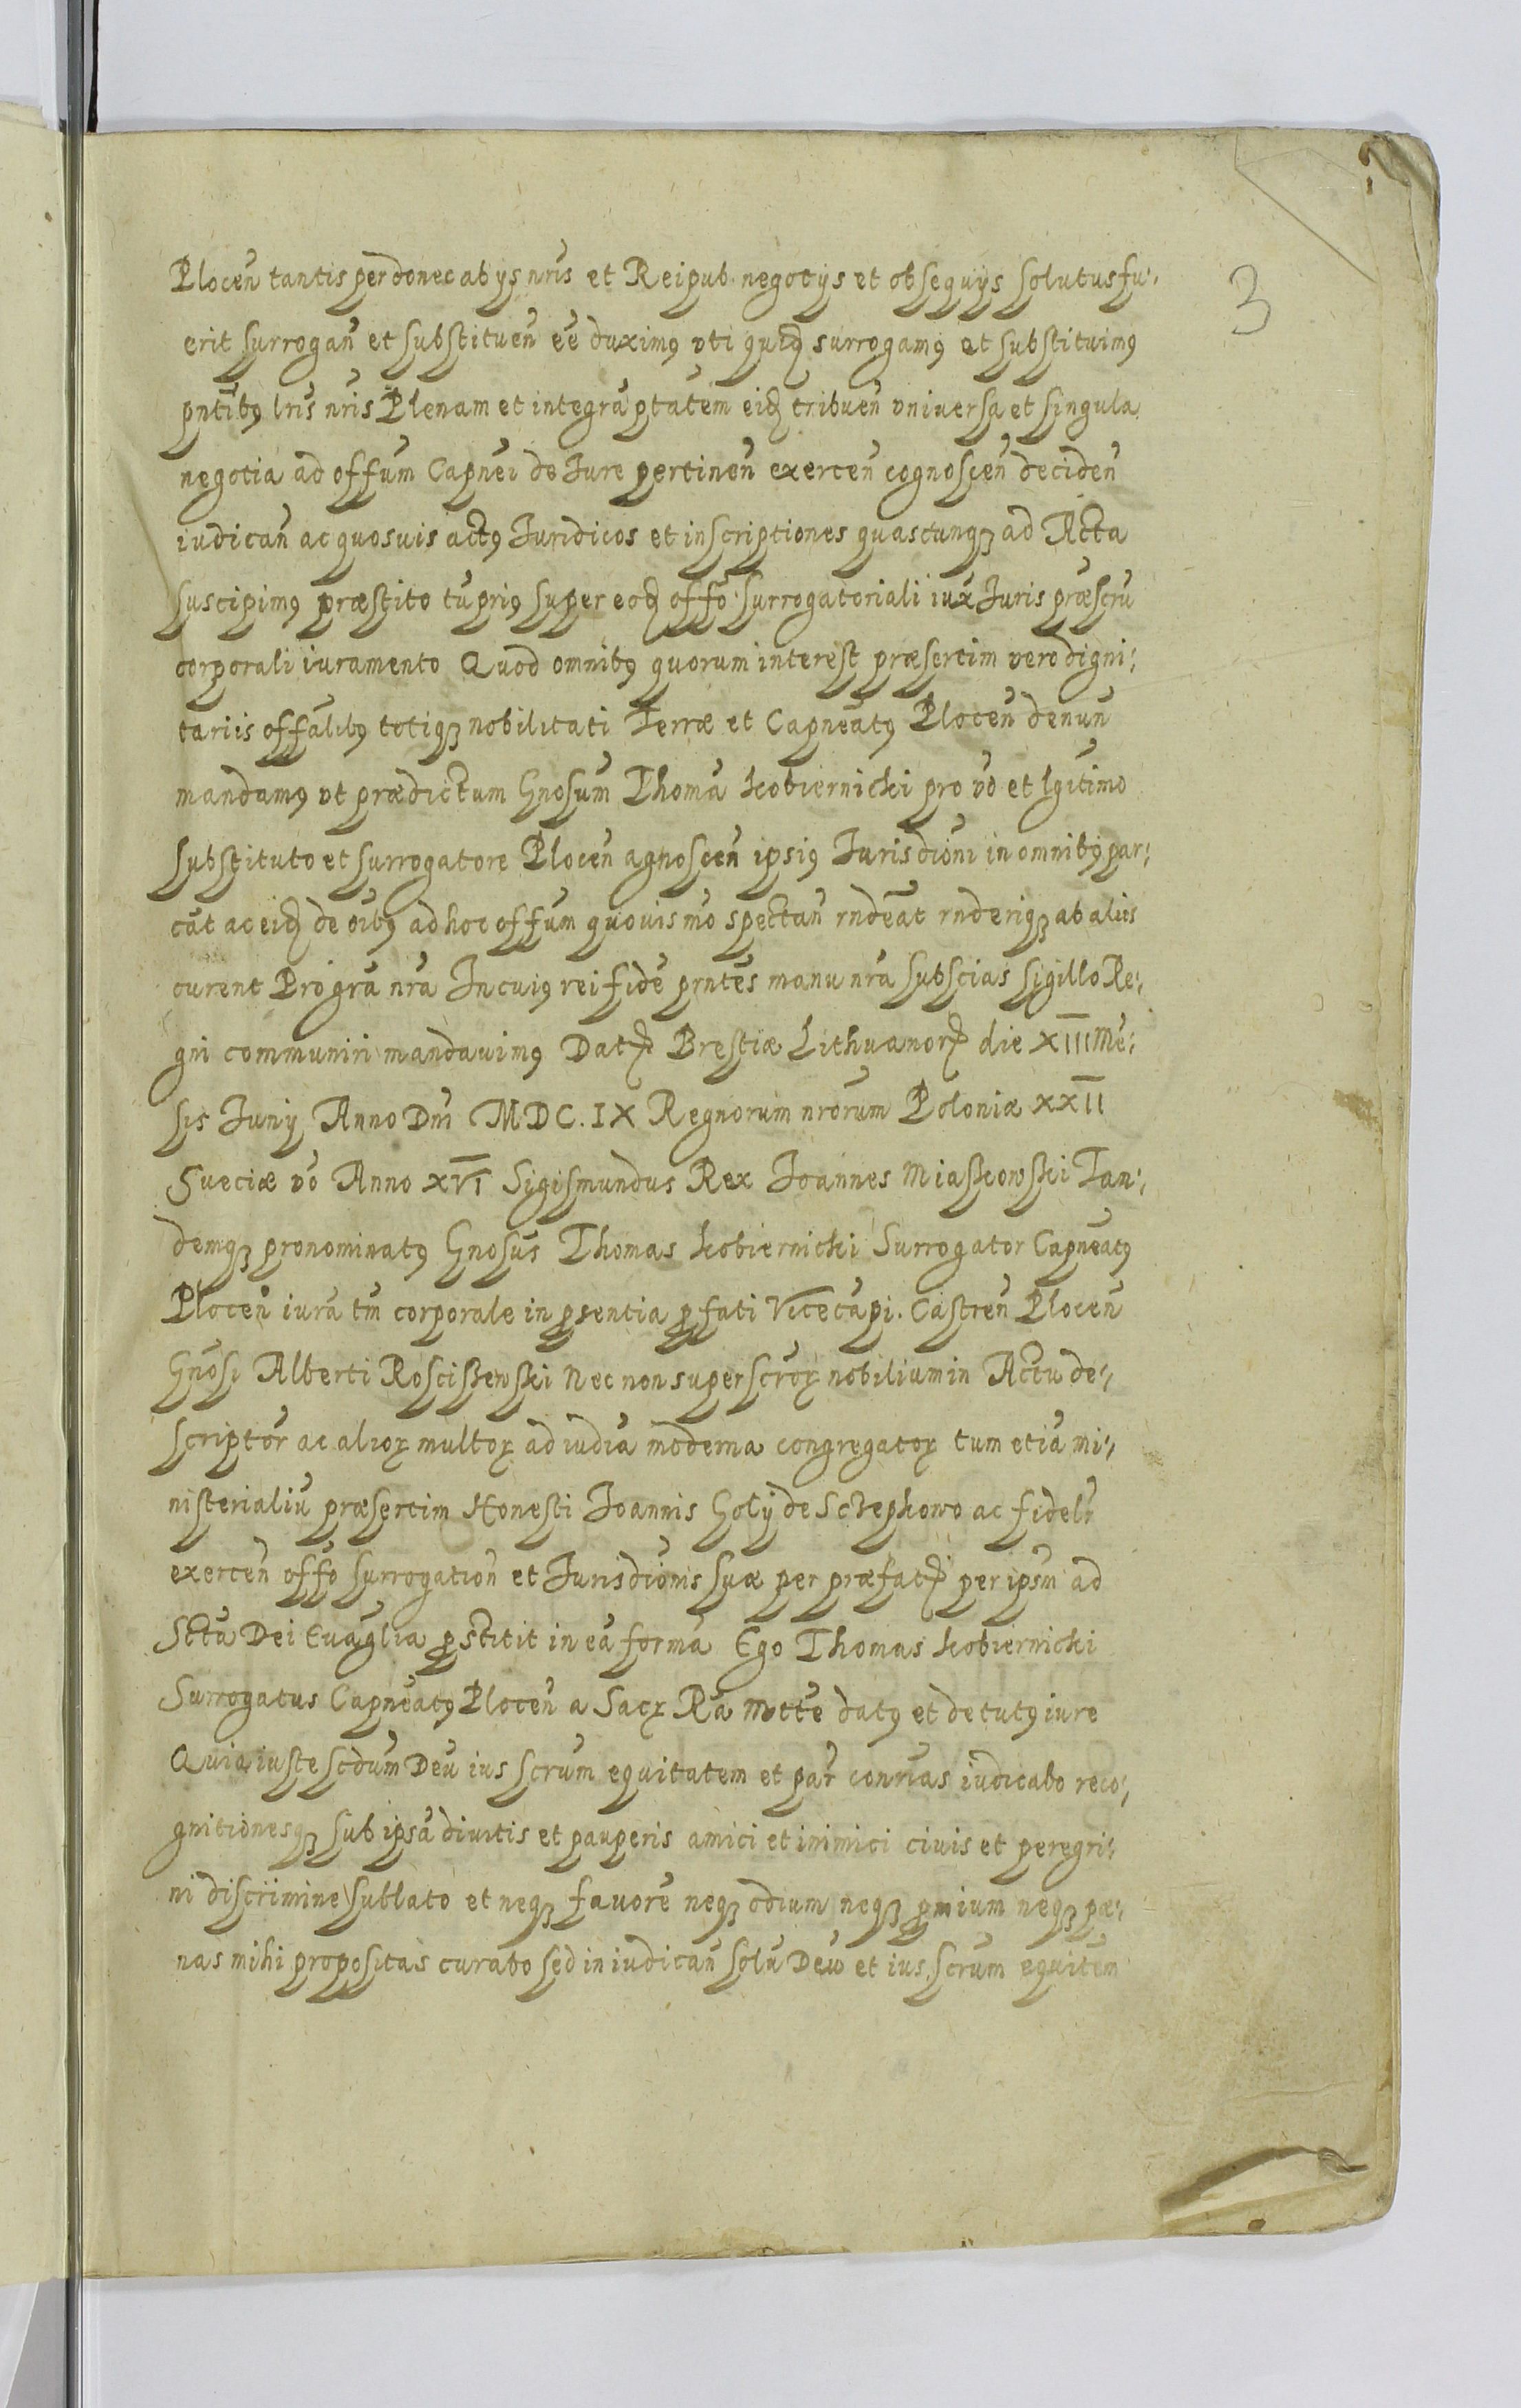 3
Plocen̄ tantisper donec ab ijs nr̄is et Reipub. negotijs et obsequijs solutus fu-
erit surrogan̄ et substituen̄ ēe duximꝰ vti quidē surrogamꝰ et substituimꝰ
pn̄tibꝰ lr̄is nr̄is Plenam et integrā ptātem eidē tribuen̄ vniuersa et singula
negotia ad offūm Capnēi de Iure pertinen̄ exercen̄ cognoscen̄ deciden̄
iudican̄ ac quosuis actꝰ Iuridicos et inscriptiones quascunqꝫ ad Acta
suscipimꝰ præstito tn̄ priꝰ super eodē offō surrogatoriali iuxā Iuris præscrū
corporali iuramento Quod omnibꝰ quorum interest præsertim vero digni-
tariis offālibꝰ totiqꝫ nobilitati Terræ et Capnēatꝰ Plocen̄ denun̄
mandamꝰ vt prædictum Gnōsum Thomā Kobiernicki pro vō et lgītimo
substituto et surrogatore Plocen̄ agnoscen̄ ipsiꝰ Iurisdiōni in omnibꝰ par-
eāt ac eidē de oībꝰ ad hoc offūm quouismō spectan̄ rndēat rnderiqꝫ ab aliis
curent Pro grā nrā In cuiꝰ rei fidē prntēs manu nrā subscrias sigillo Re-
gni communiri mandauimꝰ Datꝝ Brestiæ Lithuanorꝝ die XIII Mē-
sis Iunij Anno Dnī MDC.IX Regnorum nrōrum Poloniæ XXII
Sueciæ vō Anno XVI Sigismundus Rex Ioannes Miaskowski Tan-
demqꝫ pronominatꝰ Gnōsus Thomas Kobiernicki Surrogator Capnēatꝰ
Plocen̄ iurā tm̄ corporale in p̄sentia p̄fati Vicecāpi. Castren̄ Plocen̄
Gnōsi Alberti Roscissewski Nec non superscrōꝝ nobilium in Actu de-
scriptōr ac alioꝝ multoꝝ ad iudīa moderna congregatoꝝ tum etiā mi-
nisterialiū præsertim Honesti Ioannis Goły de Sczepkowo ac fidelr̄
exercen̄ offō surrogation̄ et Iurisdiōnis suæ per præfatꝝ per ipsm̄ ad
Sctā Dei Euāglia p̄stitit in eā formā Ego Thomas Kobiernicki
Surrogatus Capnēatꝰ Plocen̄ a Sacꝝ Rā Mttē datꝰ et deputꝰ iure
Quia iuste scdūm Deū ius scrūm equitatem et pār conrīas iudicabo reco-
gnitionesqꝫ sub ipsā diuitis et pauperis amici et inimici ciuis et peregri-
ni discrimine sublato et neqꝫ fauorē neqꝫ odium neqꝫ p̄mium neqꝫ pæ-
nas mihi propositas curabo sed in iudican̄ solū Deū et ius scrūm equitēm